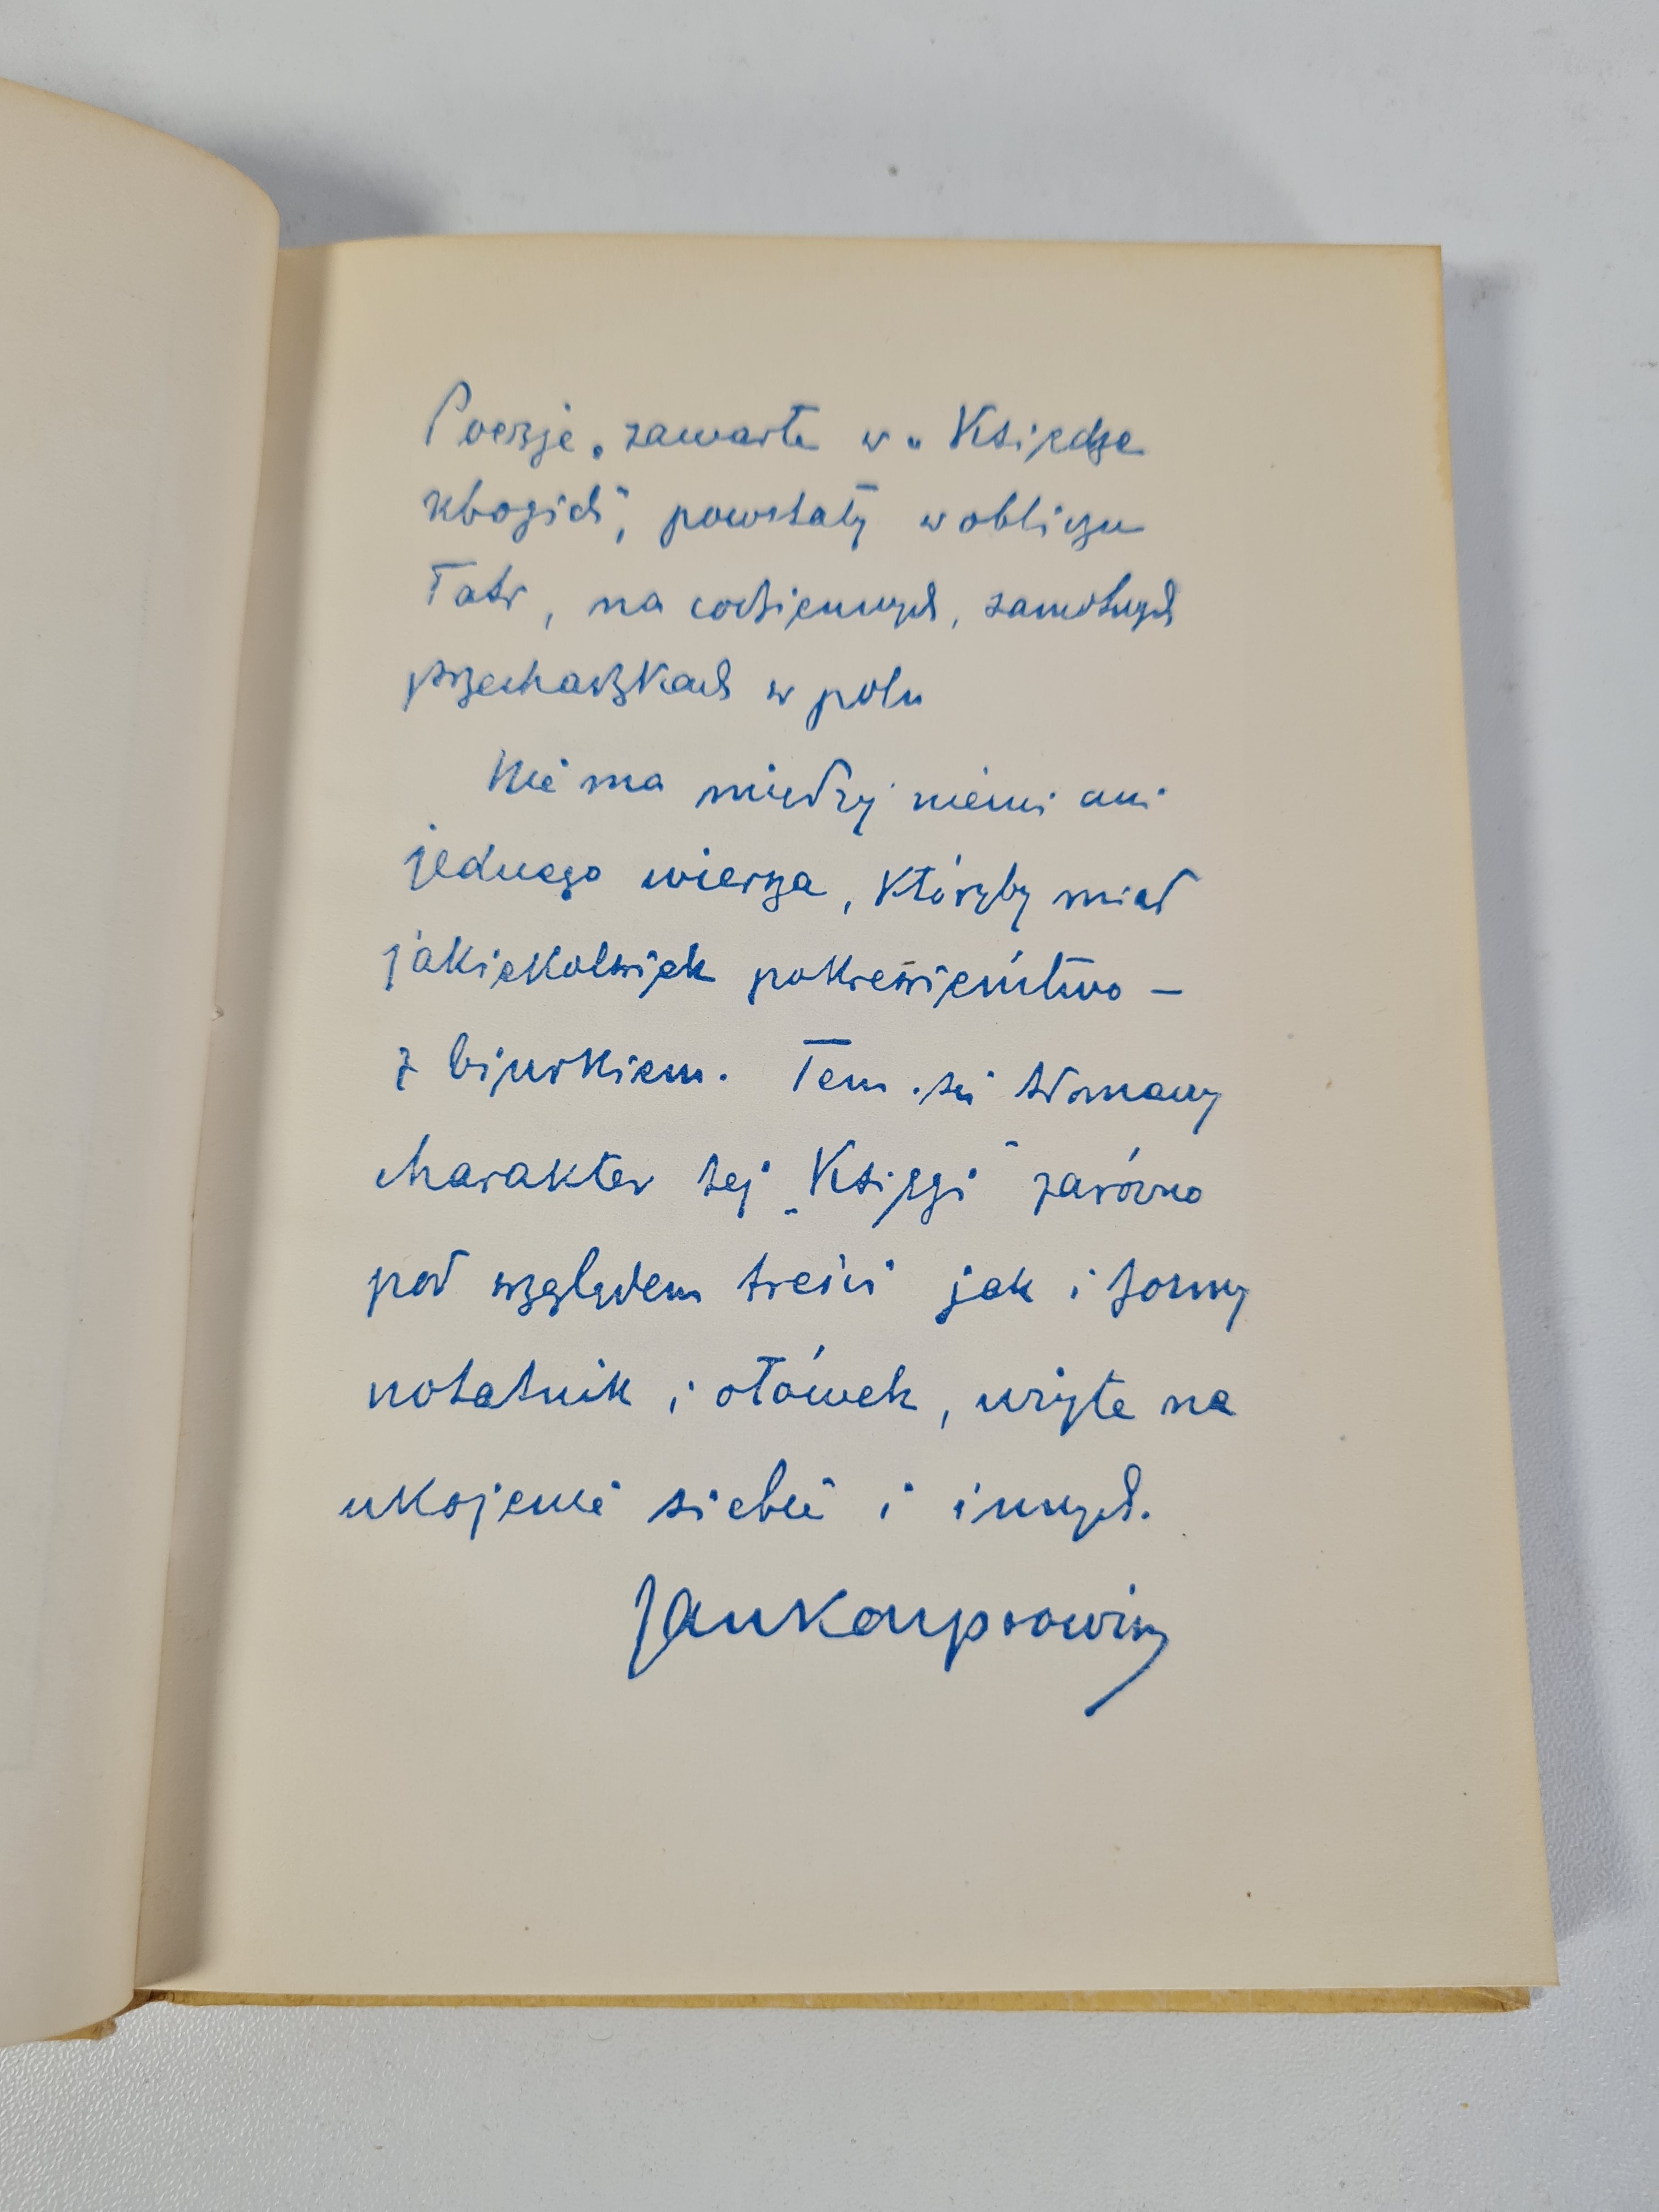 Poezje, zawarte w „Księdze
ubogich", powstały w obliczu
Tatr, na codziennych, samotnych
przechadzkach w polu
Nie ma między niemi ani
jednego wiersza, któryby miał
jakiekolwiek pokrewieństwo —
z biurkiem. Tem się tłomaczy
charakter tej „Księgi" zarówno
pod względem treści jak i formy
notatnik i ołówek, użyte na
ukojenie siebie i innych.
Jan Kasprowicz